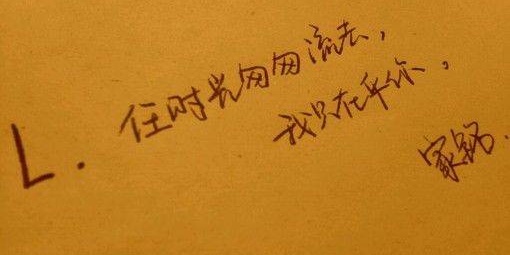 L. 任时光匆匆流去，
我只在乎你。
家铭.